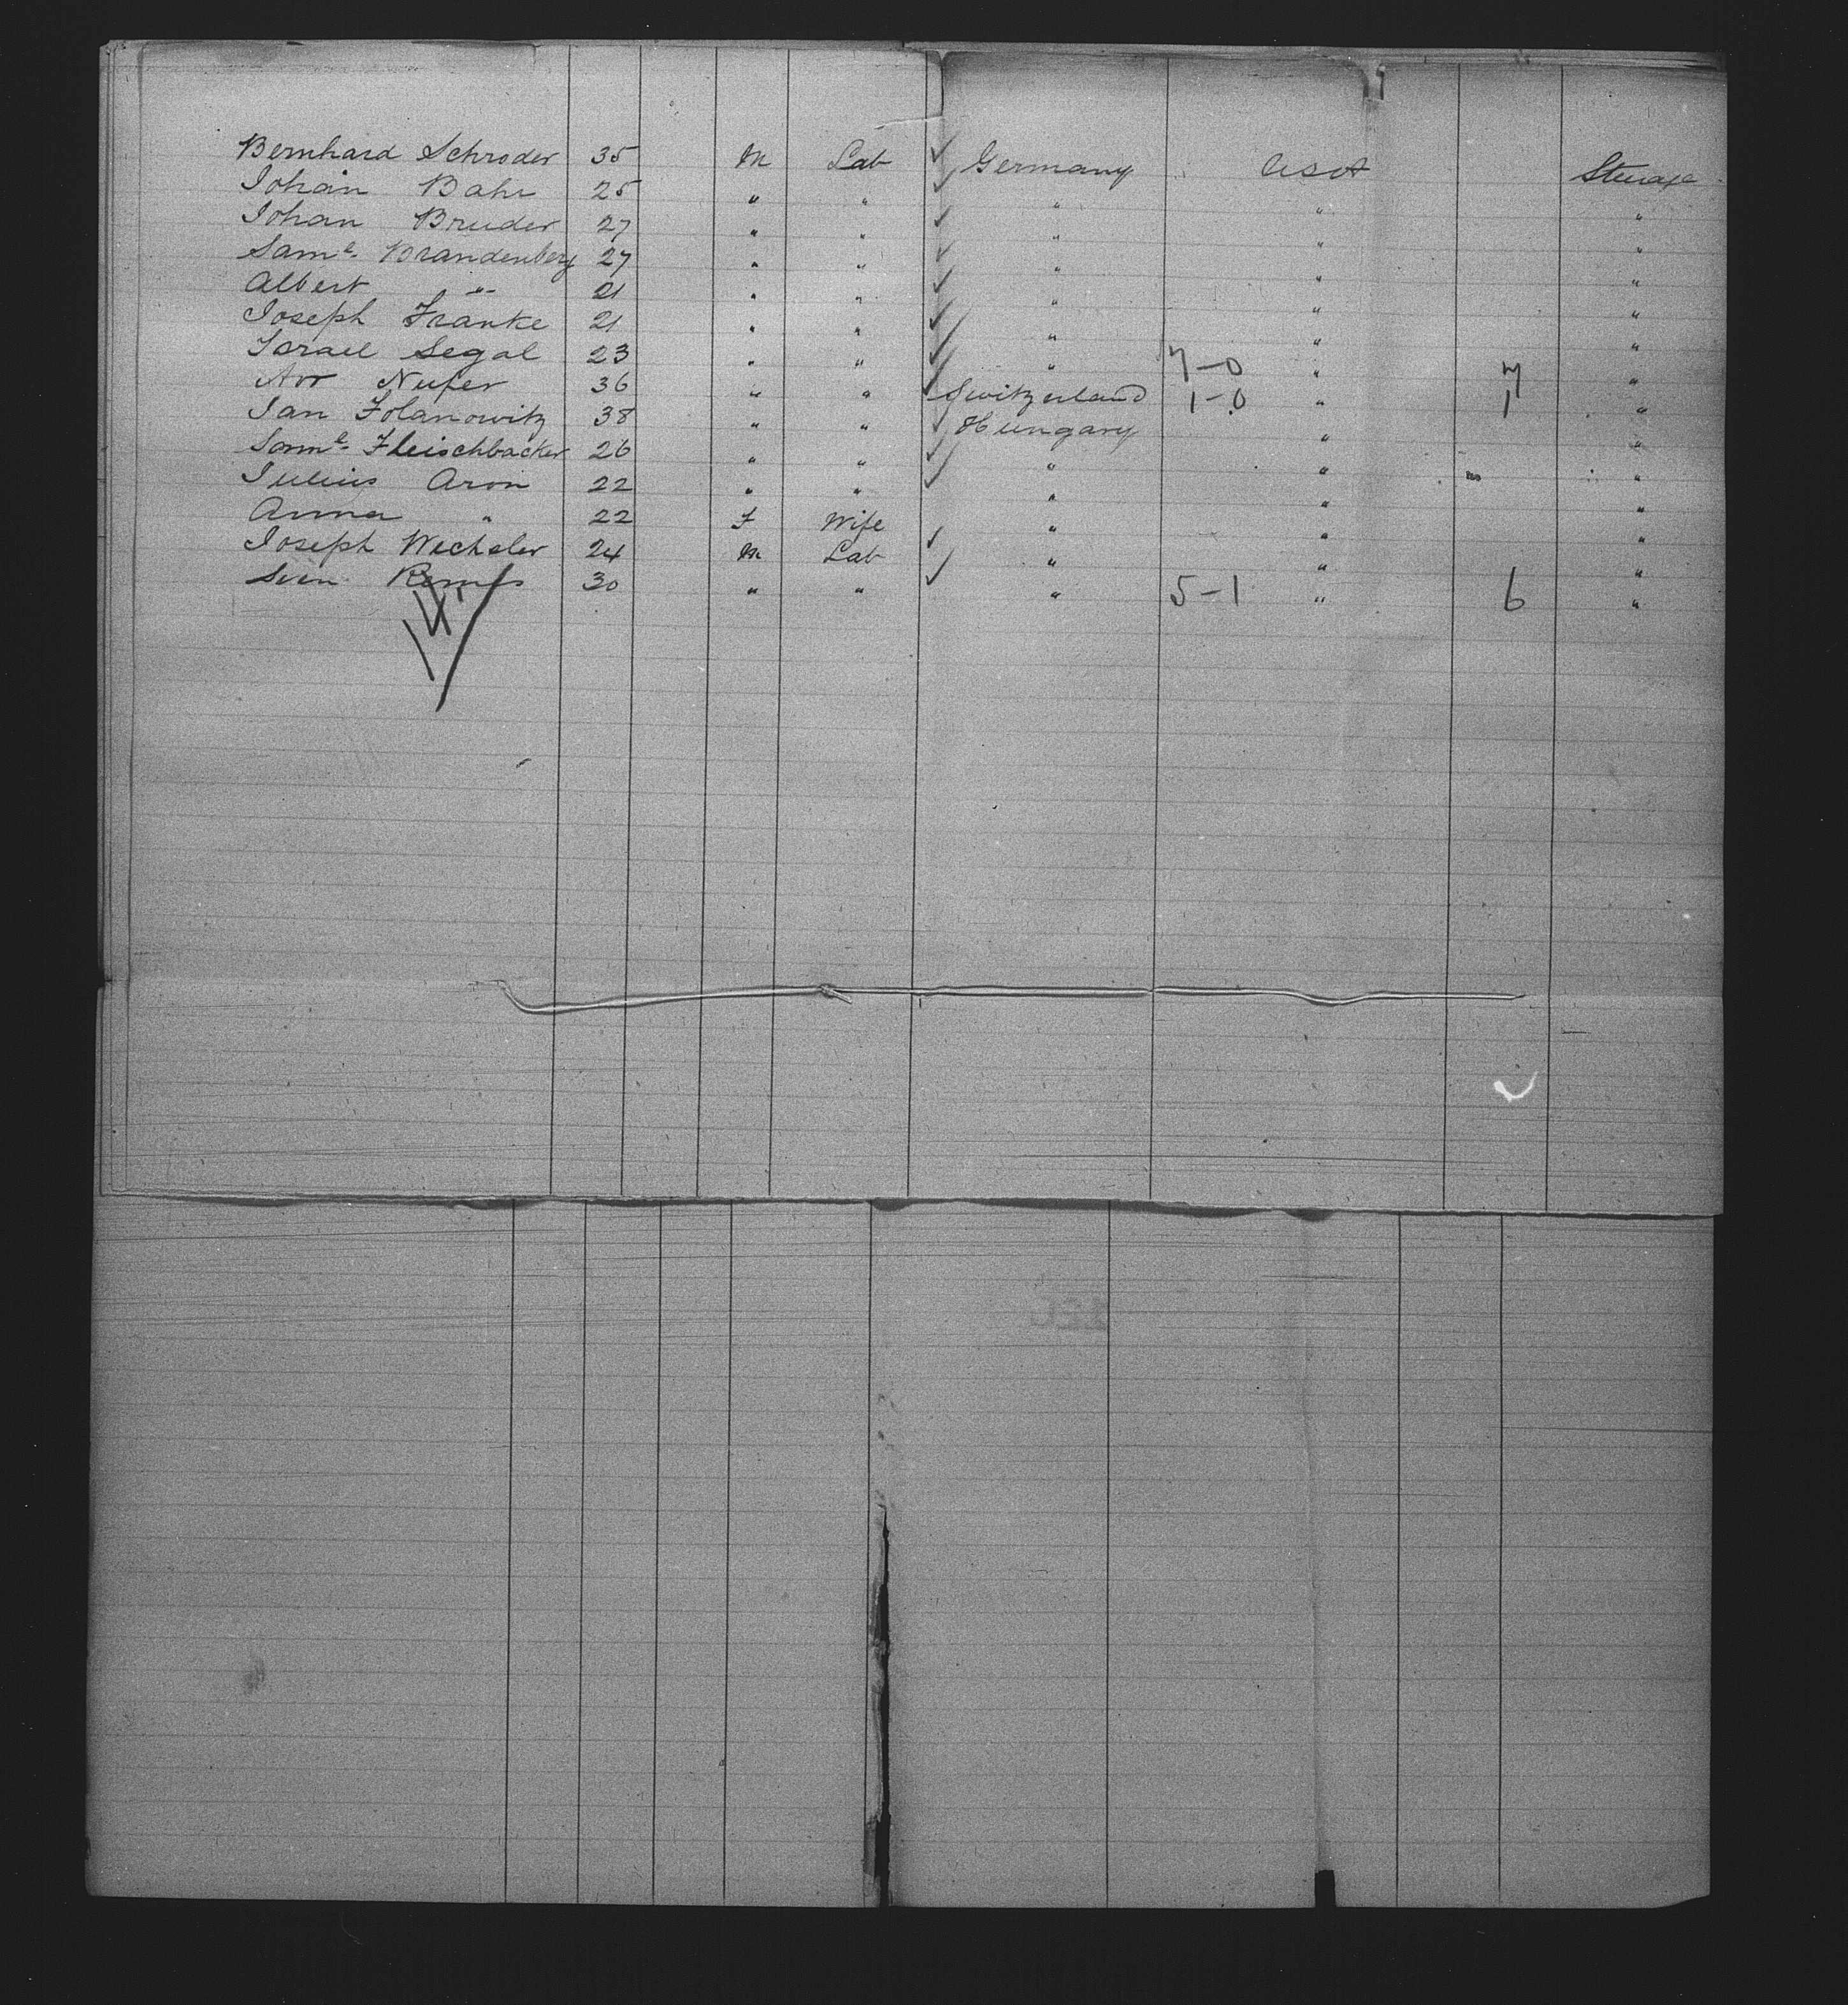 Bernhard Schroder 35 M Lab ✓ Germany USA Steerage
Johan Bahr 25 " " ✓ " " "
Johan Bruder 27 " " ✓ " " "
Saml. Brandenberg 27 " " ✓ " " "
Albert " 21 " " ✓ " " "
Joseph Franke 21 " " ✓ " " "
Israel Segal 23 " " ✓ " 7-0 " 7 "
Nufer 36 " " ✓ Switzerland 1-0 " 1 "
Jan Folanowitz 38 " " ✓ Hungary " "
Saml. Fleischbacker 26 " " ✓ " " "
Julius Aron 22 " " ✓ " " "
Anna " 22 F Wife " " "
Joseph Wechsler 24 M Lab ✓ " " "
Sven 30 " " ✓ " 5-1 " 6 "